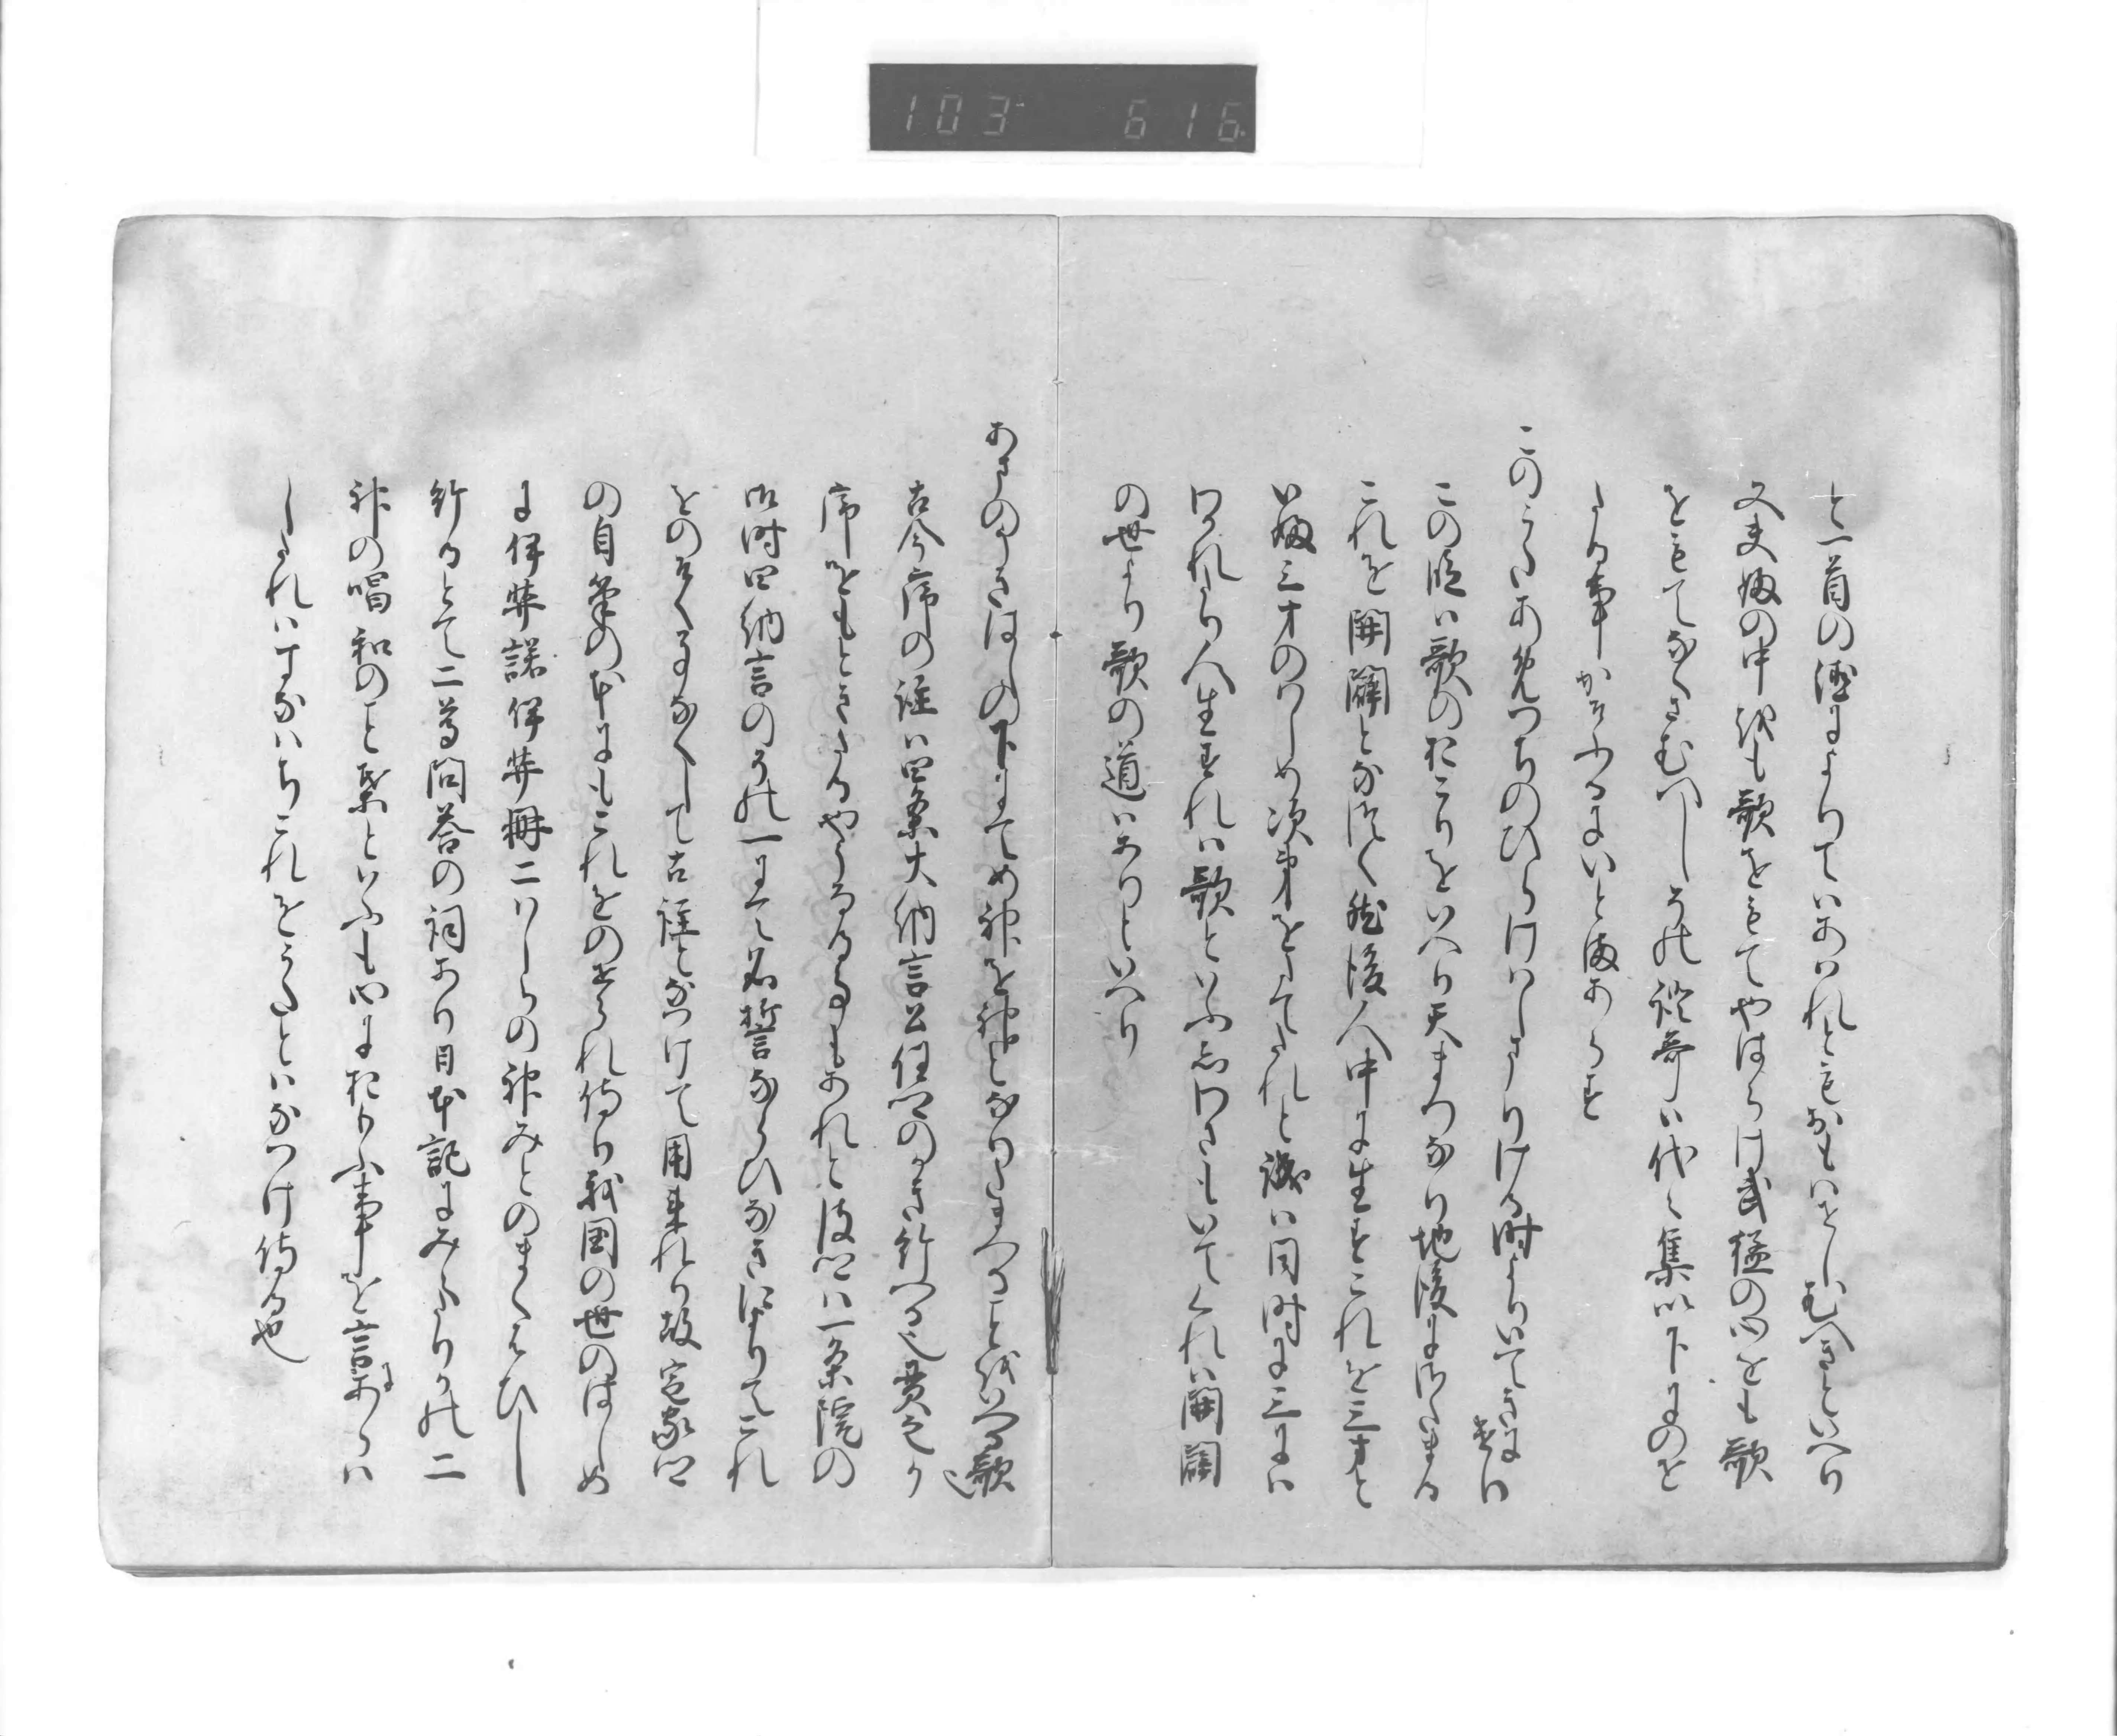 103 616
と一首の徳によりてはあはれともおもはせしむへきといへり
又夫婦の中媒も歌をもてやはらけ武猛の心をも歌
をもてなくさむへしその証哥は代々集以下にのせ
たる事かそふるにいとまあらす
このうたあめつちのひらけはしまりける時よりいてきにけり
この段は歌のおこりをいへり天まつなり地後にさたまる
これを開闢となつく然後人中に生すこれを三才と
いふ三才のはしめ次第をたてたれと誠は同時に三には
わかれたり人生すれは歌といふ心わさもいてくれは開闢
の世より歌の道はありといへり
あまのうきはしの下にてめ神を神となりたまへることをいへる歌也
古今序の註は四条大納言公任卿のかき給へる也貫之か
序をもときたるやうなる事もあれと彼卿は一条院の
御時四納言のその一にて名誉ならひなきによりてこれ
をのそく事なくして古註となつけて用来れり故定家卿
の自筆の本にもこれをのせられ侍り我国の世のはしめ
に伊弉諾伊弉冊二はしらの神みとのまくはひし
給るとて二首問答の詞あり日本記にみえたりその二
神の唱和のこと葉といふも心におもふ事を言にあらは
しぬれはすなはちこれをうたとはなつけ侍る也